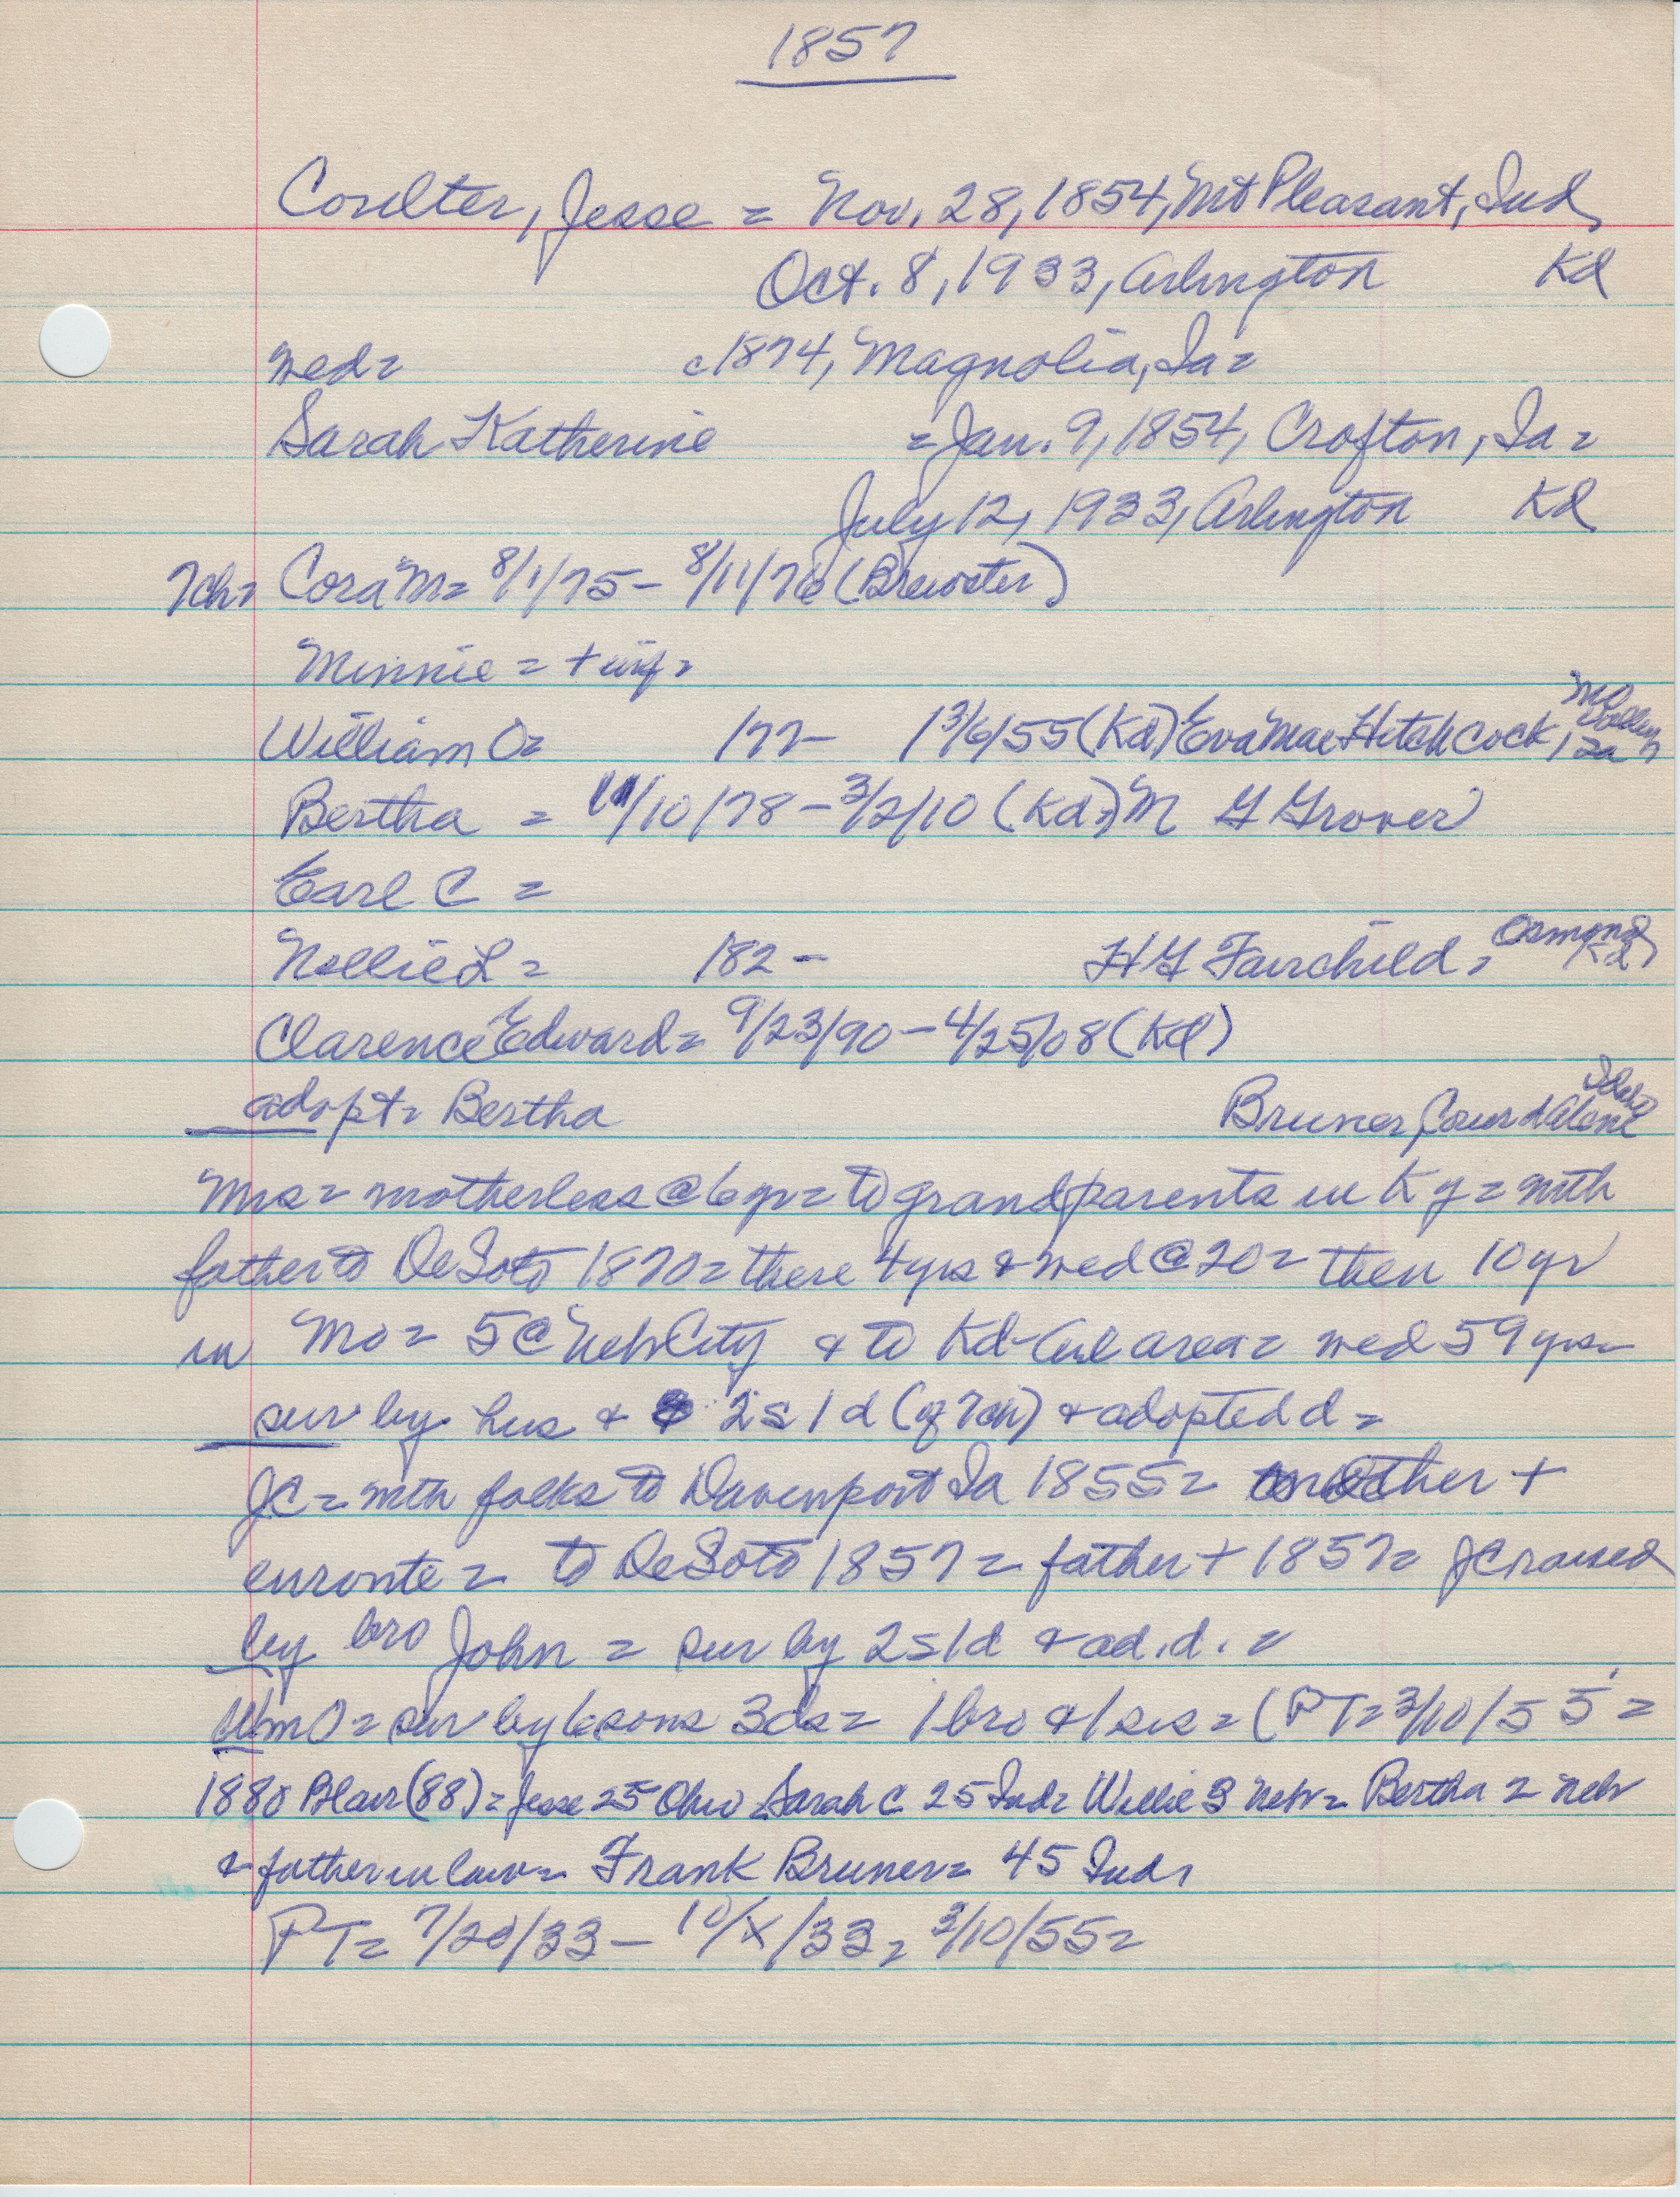 1857
Coulter, Jesse = Nov. 28, 1854, Mt Pleasant, Ind,
Oct. 8, 1933, Arlington Kd
wed = c1874, Magnolia, Ia =
Sarah Katherine = Jan. 9, 1854, Crofton, Ia =
July 12, 1933, Arlington Kd
7ch = Cora M = 8/1/75 - 8/11/76 (Brewster)
Minnie = + inf =
William O = /77 - 3/6/55 (Kd) Eva Mae Hitchcock, Mo Valley, Ia
Bertha = /10/78 - 3/2/10 (Kd) = M G Grover
Earl C =
Nellie L = /82 - H G Fairchild, Osmond Kd
Clarence Edward = 9/23/90 - 4/25/08 (Kd)
adopt = Bertha Bruner, Couer d Alene Idaho
Mrs = motherless @ 6 yr = to grandparents in Ky = with
father to DeSoto 1870 = there 4 yrs & wed @ 20 = then 10 yr
in Mo = 5 @ Neb City & to Kd-Arl area = wed 59 yrs =
sur by hus & 2s 1d (of 7ch) & adopted d =
JC = with folks to Davenport Ia 1855 = mother +
enroute = to DeSoto 1857 = father + 1857 = JC raised
by bro John = sur by 2s 1d & ad. d. =
Wm O = sur by 6 sons 3 ds = 1 bro & 1 sis = (PT = 3/10/55 =
1880 Blair (88) = Jesse 25 Ohio Sarah C 25 Ind = Willie 3 Neb = Bertha 2 Neb
& father in law = Frank Bruner = 45 Ind,
PT = 7/20/33 - 10/X/33, 3/10/55 =